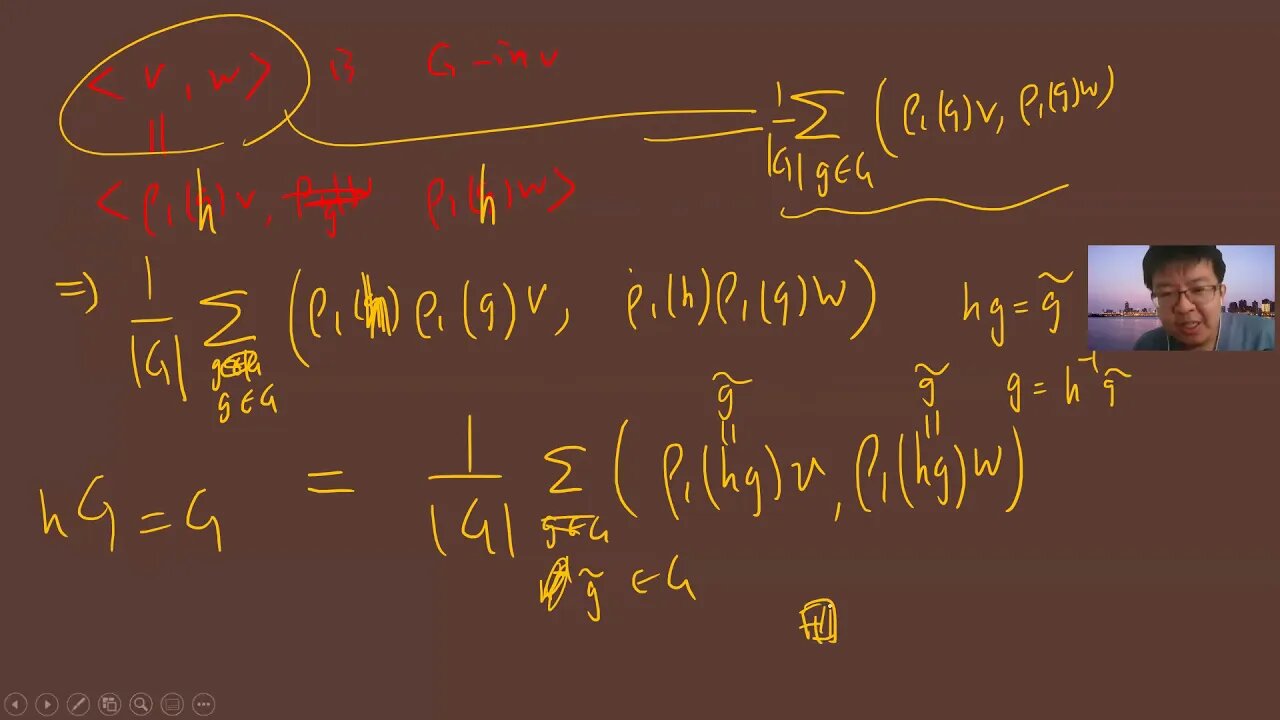 < v , w > is G-inv
||
< ρ₁(h)v, ρ₁(h)w >
1/|G| ∑ g∈G (ρ₁(g)v, ρ₁(g)w)
⇒) 1/|G| ∑ g∈G (ρ₁(h) ρ₁(g)v, ρ₁(h)ρ₁(g)w)
hg = g̃
g = h⁻¹ g̃
g̃ g̃
|| ||
hG = G = 1/|G| ∑ g̃ ∈ G (ρ₁(hg)v, ρ₁(hg)w)